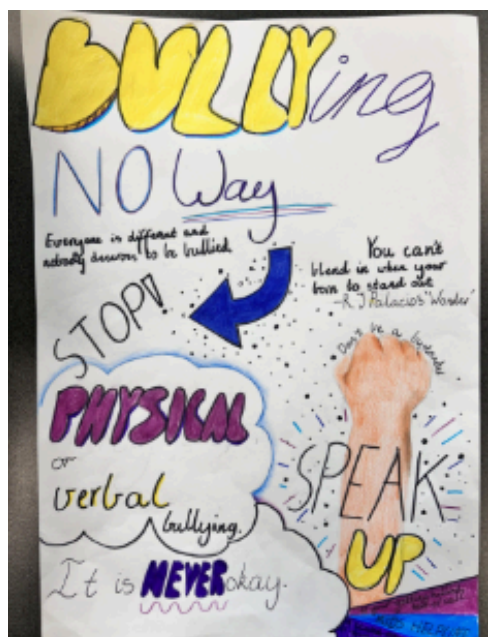 BULLYing
NO Way
Everyone is different and
nobody deserves to be bullied.
STOP!
You can't
blend in when your
born to stand out
-R.J Palacios "Wonder"
Don't be a bystander
PHYSICAL
or
verbal
bullying.
It is NEVER okay.
SPEAK
UP
KIDS HELPLINE